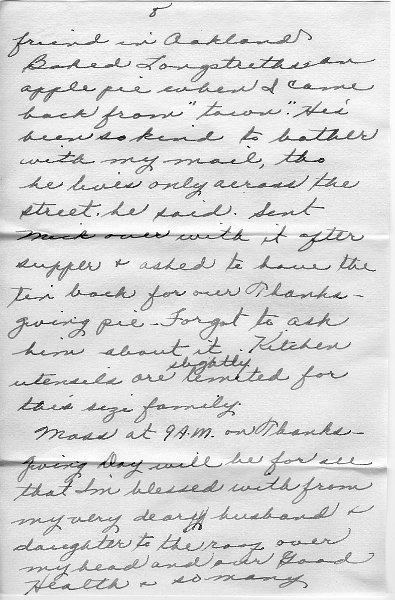 8
friend in Oakland
Baked Longstreths an
apple pie when I came
back from "town". He's
been so kind to bother
with my mail, tho
he lives only across the
street. he said. Sent
Mick over with it after
supper & asked to have the
tin back for our Thanks-
giving pie - Forgot to ask
him about it. Kitchen
slightly
utensels are limited for
this size family.
Mass at 9 A.M. on Thanks-
giving Day will be for all
that I'm blessed with from
my very dear husband &
daughter to the roof over
my head and our Good
Health & so many